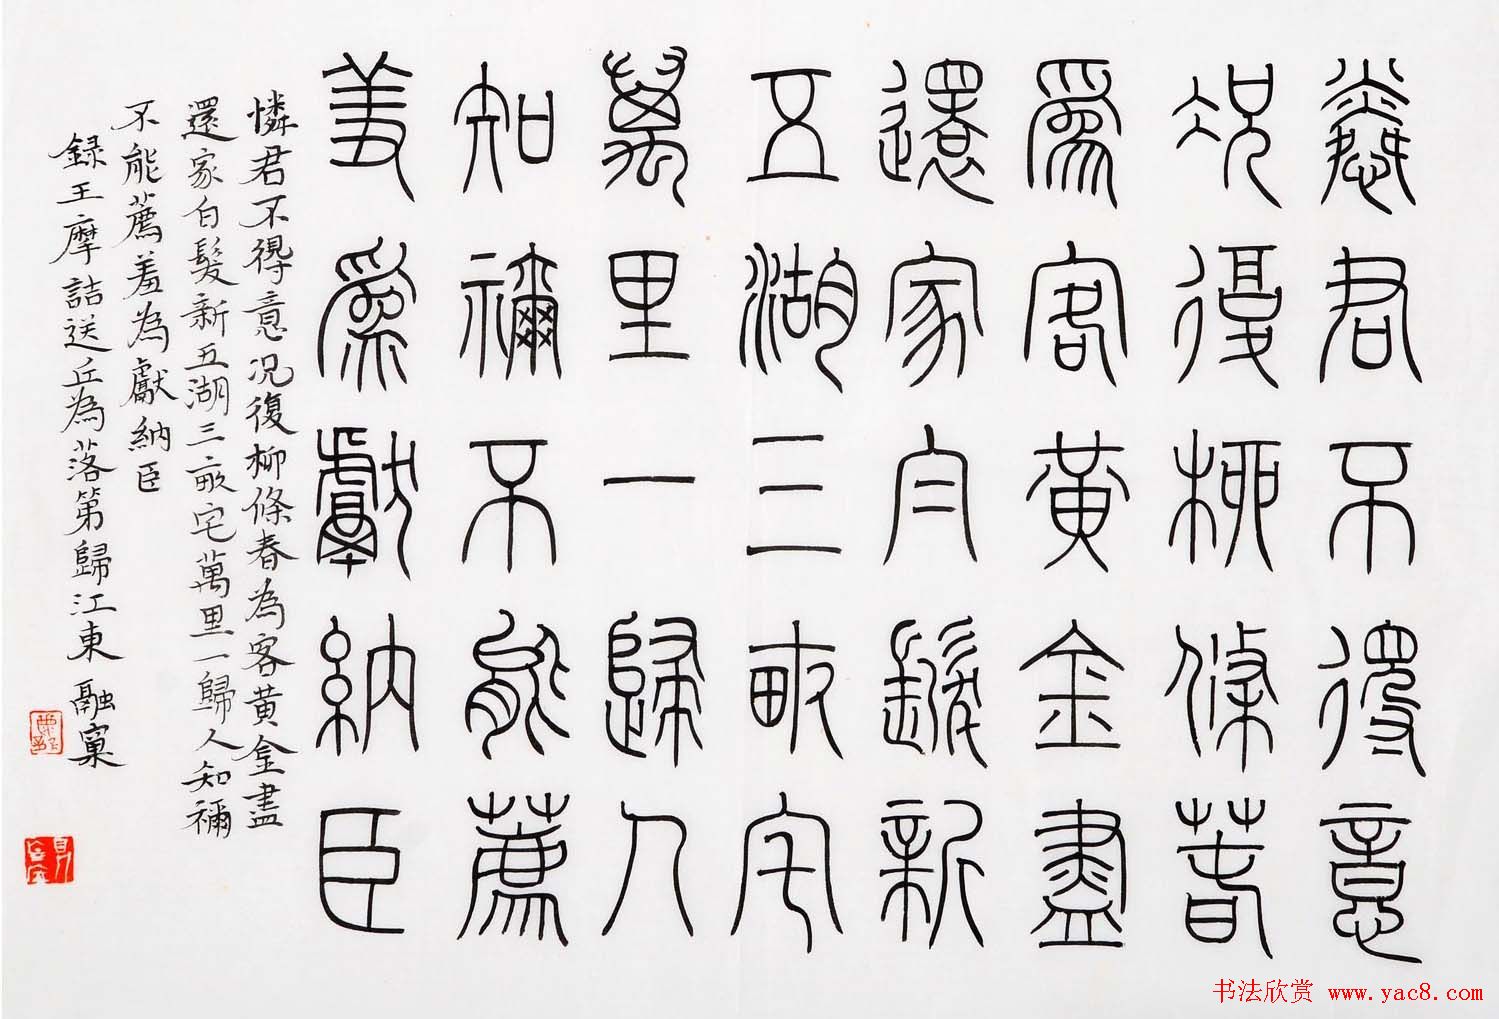 憐君不得意
況復柳條春
為客黃金盡
還家白髮新
五湖三畝宅
萬里一歸人
知禰不能薦
羞為獻納臣
憐君不得意況復柳條春為客黃金盡
還家白髮新五湖三畝宅萬里一歸人知禰
不能薦羞為獻納臣
錄王摩詰送丘為落第歸江東 融窠
书法欣赏 www.yac8.com